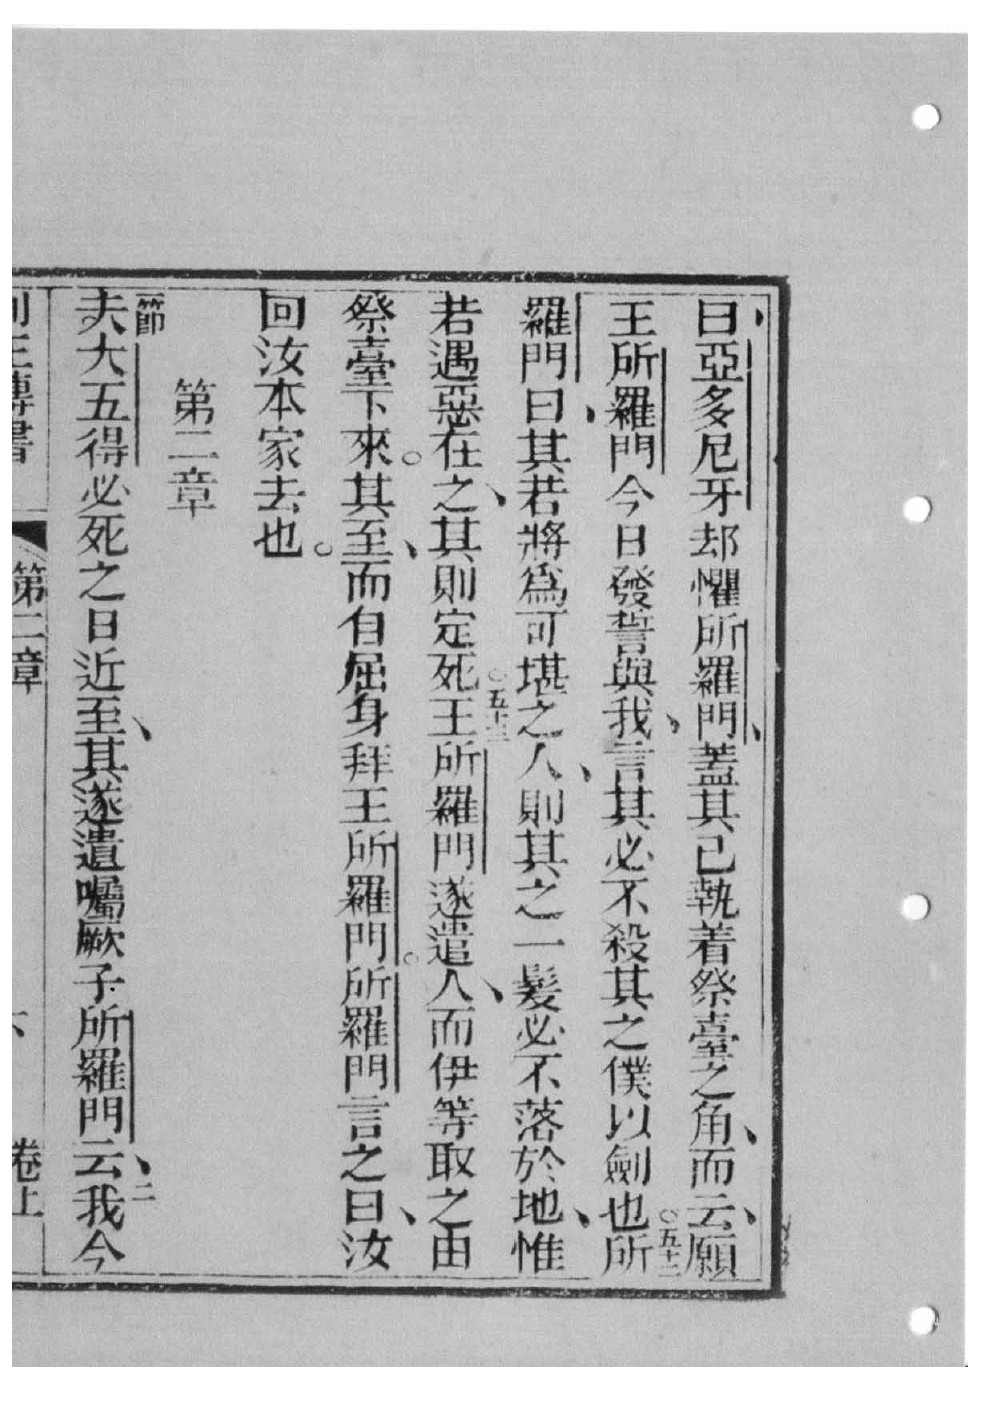 曰、亞多尼牙却懼所羅門、蓋其已執着祭臺之角、而云、願
王所羅門今日發誓與我、言其必不殺其之僕以劍也○五十二所
羅門曰、其若將爲可堪之人、則其之一髮必不落於地、惟
若遇惡在之、其則定死○五十三王所羅門遂遣人、而伊等取之由
祭臺下來。其至、而自屈身拜王所羅門。所羅門言之曰、汝
回汝本家去也。
第二章
一節夫大五得必死之日近至、其遂遣囑厥子所羅門云、二我今
列王傳書 第二章 卷上